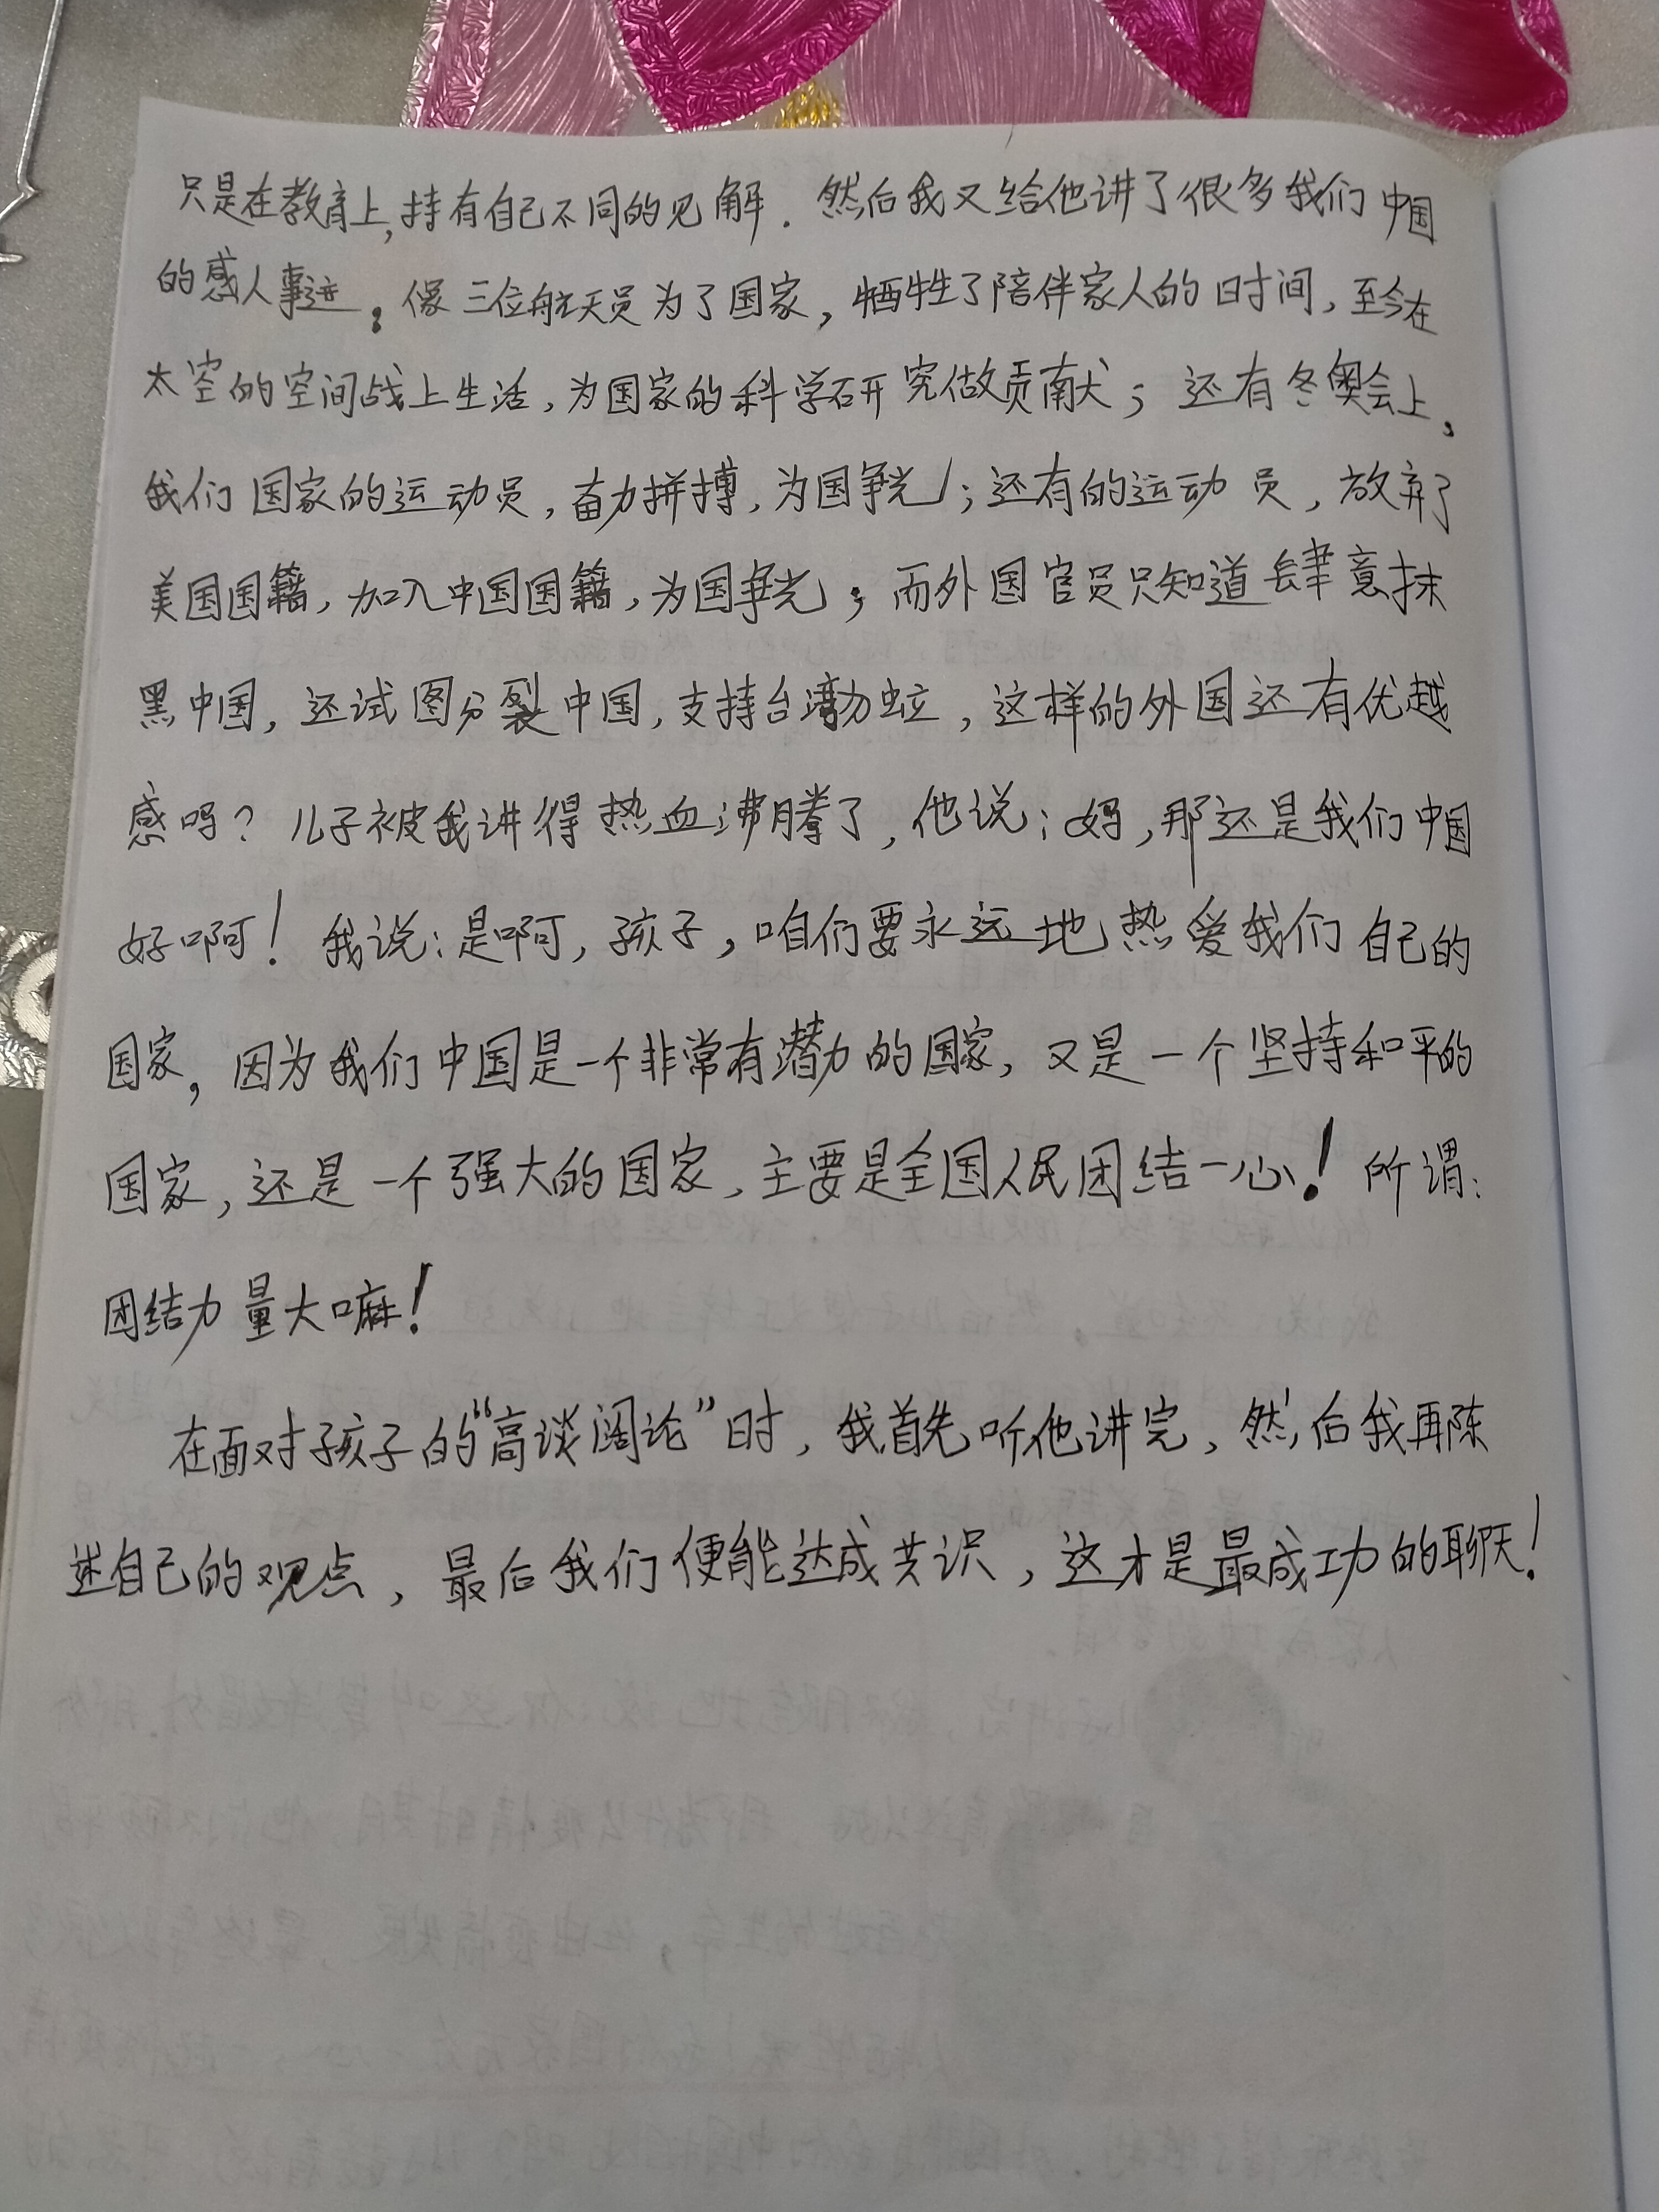 只是在教育上,持有自己不同的见解.然后我又给他讲了很多我们中国
的感人事迹。像三位航天员为了国家,牺牲了陪伴家人的时间,至今在
太空的空间战上生活,为国家的科学研究做贡献;还有冬奥会上,
我们国家的运动员,奋力拼搏,为国争光;还有的运动员,放弃了
美国国籍,加入中国国籍,为国争光;而外国官员只知道肆意抹
黑中国,还试图分裂中国,支持台湾,这样的外国还有优越
感吗?儿子被我讲得热血沸腾了,他说:妈,那还是我们中国
好啊!我说:是啊,孩子,咱们要永远地热爱我们自己的
国家,因为我们中国是一个非常有潜力的国家,又是一个坚持和平的
国家,还是一个强大的国家,主要是全国人民团结一心!所谓:
团结力量大嘛!
在面对孩子的“高谈阔论”时,我首先听他讲完,然后我再陈
述自己的观点,最后我们便能达成共识,这才是最成功的聊天!